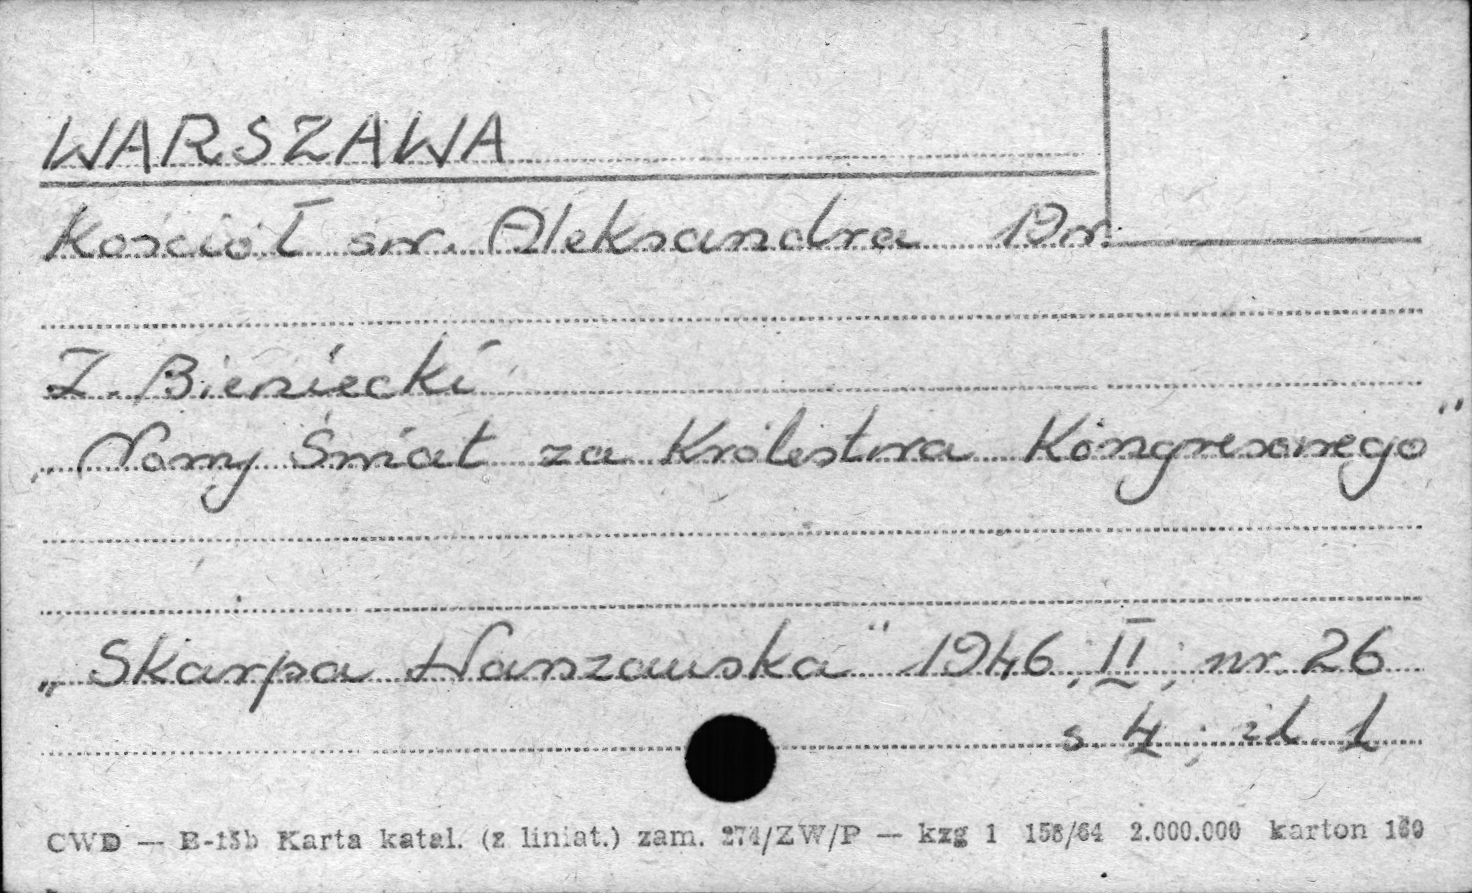 WARSZAWA
Kościół św. Aleksandra 19 w.
Z. Bieniecki
„Nowy Świat za Królestwa Kongresowego"
„Skarpa Warszawska" 1946; II; nr 26
s. 4; il. 1
CWD — B-15b Karta katal. (z liniat.) zam. 274/ZW/P — kzg 1 158/64 2.000.000 karton 160